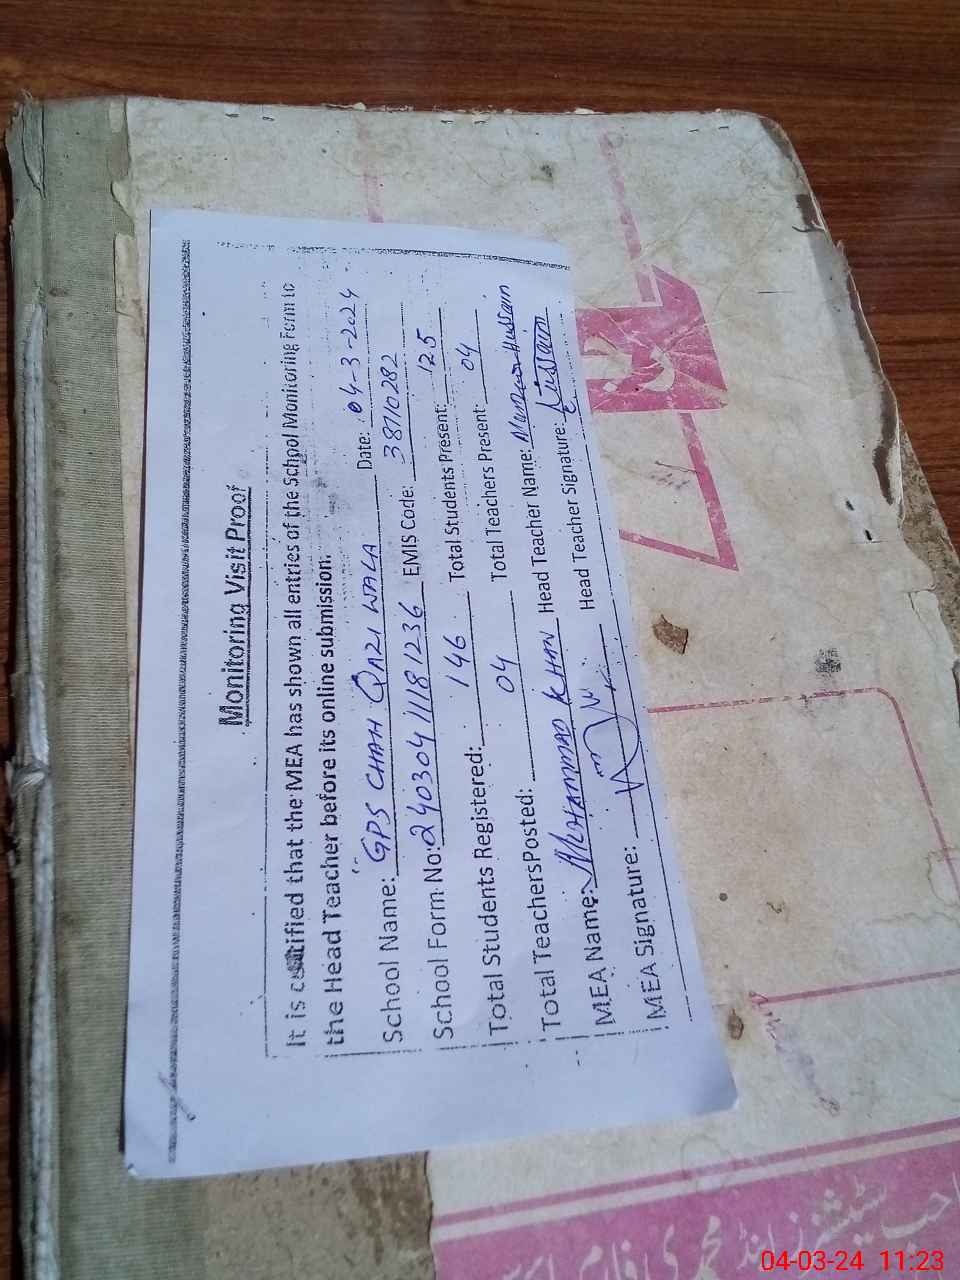 Monitoring Visit Proof
It is certified that the MEA has shown all entries of the School Monitoring Form to
the Head Teacher before its online submission.
School Name: GPS CHAH QAZI WALA Date: 04-3-2024
School Form No: 240304111181236 EMIS Code: 38710282
Total Students Registered: 146 Total Students Present: 125
Total Teachers Posted: 04 Total Teachers Present: 04
MEA Name: MUHAMMAD KHAN Head Teacher Name: Hussain
MEA Signature: Head Teacher Signature: Hussain
04-03-24 11:23